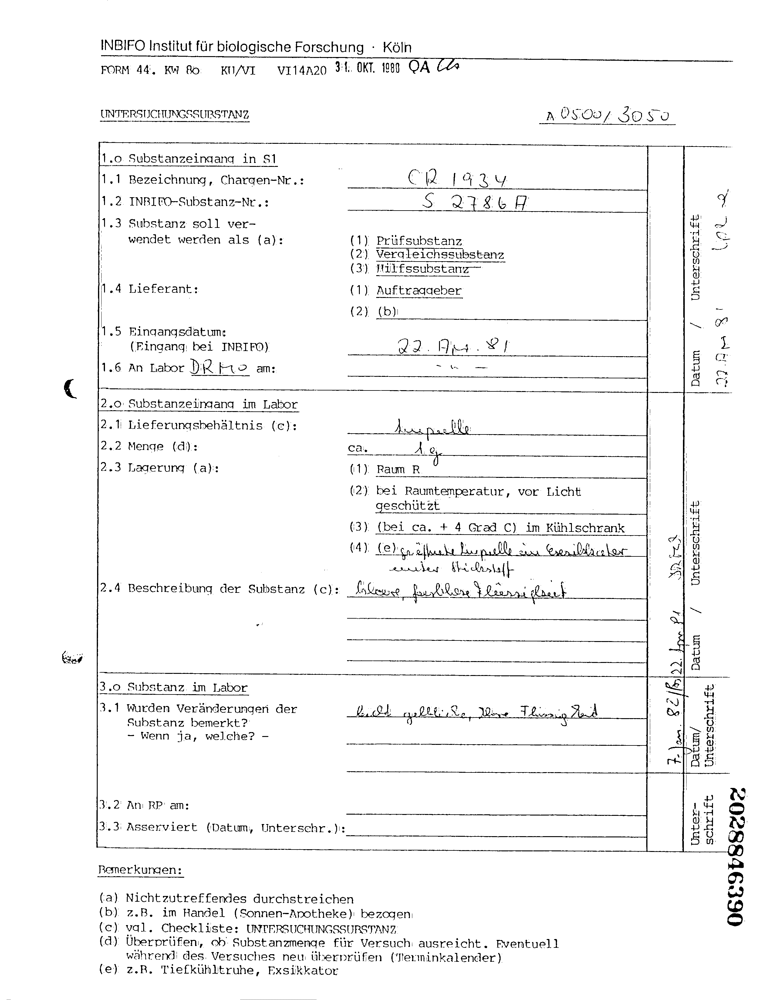 INBIFO Institut für biologische Forschung · Köln
FORM 44. KW 80 KU/VI VI14A20 31. OKT. 1980 QA
UNTERSUCHUNGSSUBSTANZ A 0500/3050
1.0 Substanzeingang in S1
1.1 Bezeichnung, Chargen-Nr.: CR 1934
1.2 INBIFO-Substanz-Nr.: S 2786A
1.3 Substanz soll ver-
wendet werden als (a): (1) Prüfsubstanz
(2) Vergleichssubstanz
(3) Hilfssubstanz
1.4 Lieferant: (1) Auftraggeber
(2) (b)
1.5 Eingangsdatum:
(Eingang bei INBIFO) 22. Apr. 81
1.6 An Labor DRMO am: - " -
Datum / Unterschrift
22. Apr 81
2.0 Substanzeingang im Labor
2.1 Lieferungsbehältnis (c): Ampulle
2.2 Menge (d): ca. 1 g
2.3 Lagerung (a): (1) Raum R
(2) bei Raumtemperatur, vor Licht
geschützt
(3) (bei ca. + 4 Grad C) im Kühlschrank
(4) (e) geöffnete Ampulle im Exsikkator
unter Stickstoff
2.4 Beschreibung der Substanz (c): klare, farblose Flüssigkeit
Datum / Unterschrift
22. Apr 81
3.0 Substanz im Labor
3.1 Wurden Veränderungen der
Substanz bemerkt?
- Wenn ja, welche? -
leicht gelbliche, klare Flüssigkeit
Datum/
Unterschrift
7. Jan. 82
3.2 An RP am:
3.3 Asserviert (Datum, Unterschr.):
Unter-
schrift
2028846390
Bemerkungen:
(a) Nichtzutreffendes durchstreichen
(b) z.B. im Handel (Sonnen-Apotheke) bezogen
(c) vgl. Checkliste: UNTERSUCHUNGSSUBSTANZ
(d) Überprüfen, ob Substanzmenge für Versuch ausreicht. Eventuell
während des Versuches neu überprüfen (Terminkalender)
(e) z.B. Tiefkühltruhe, Exsikkator